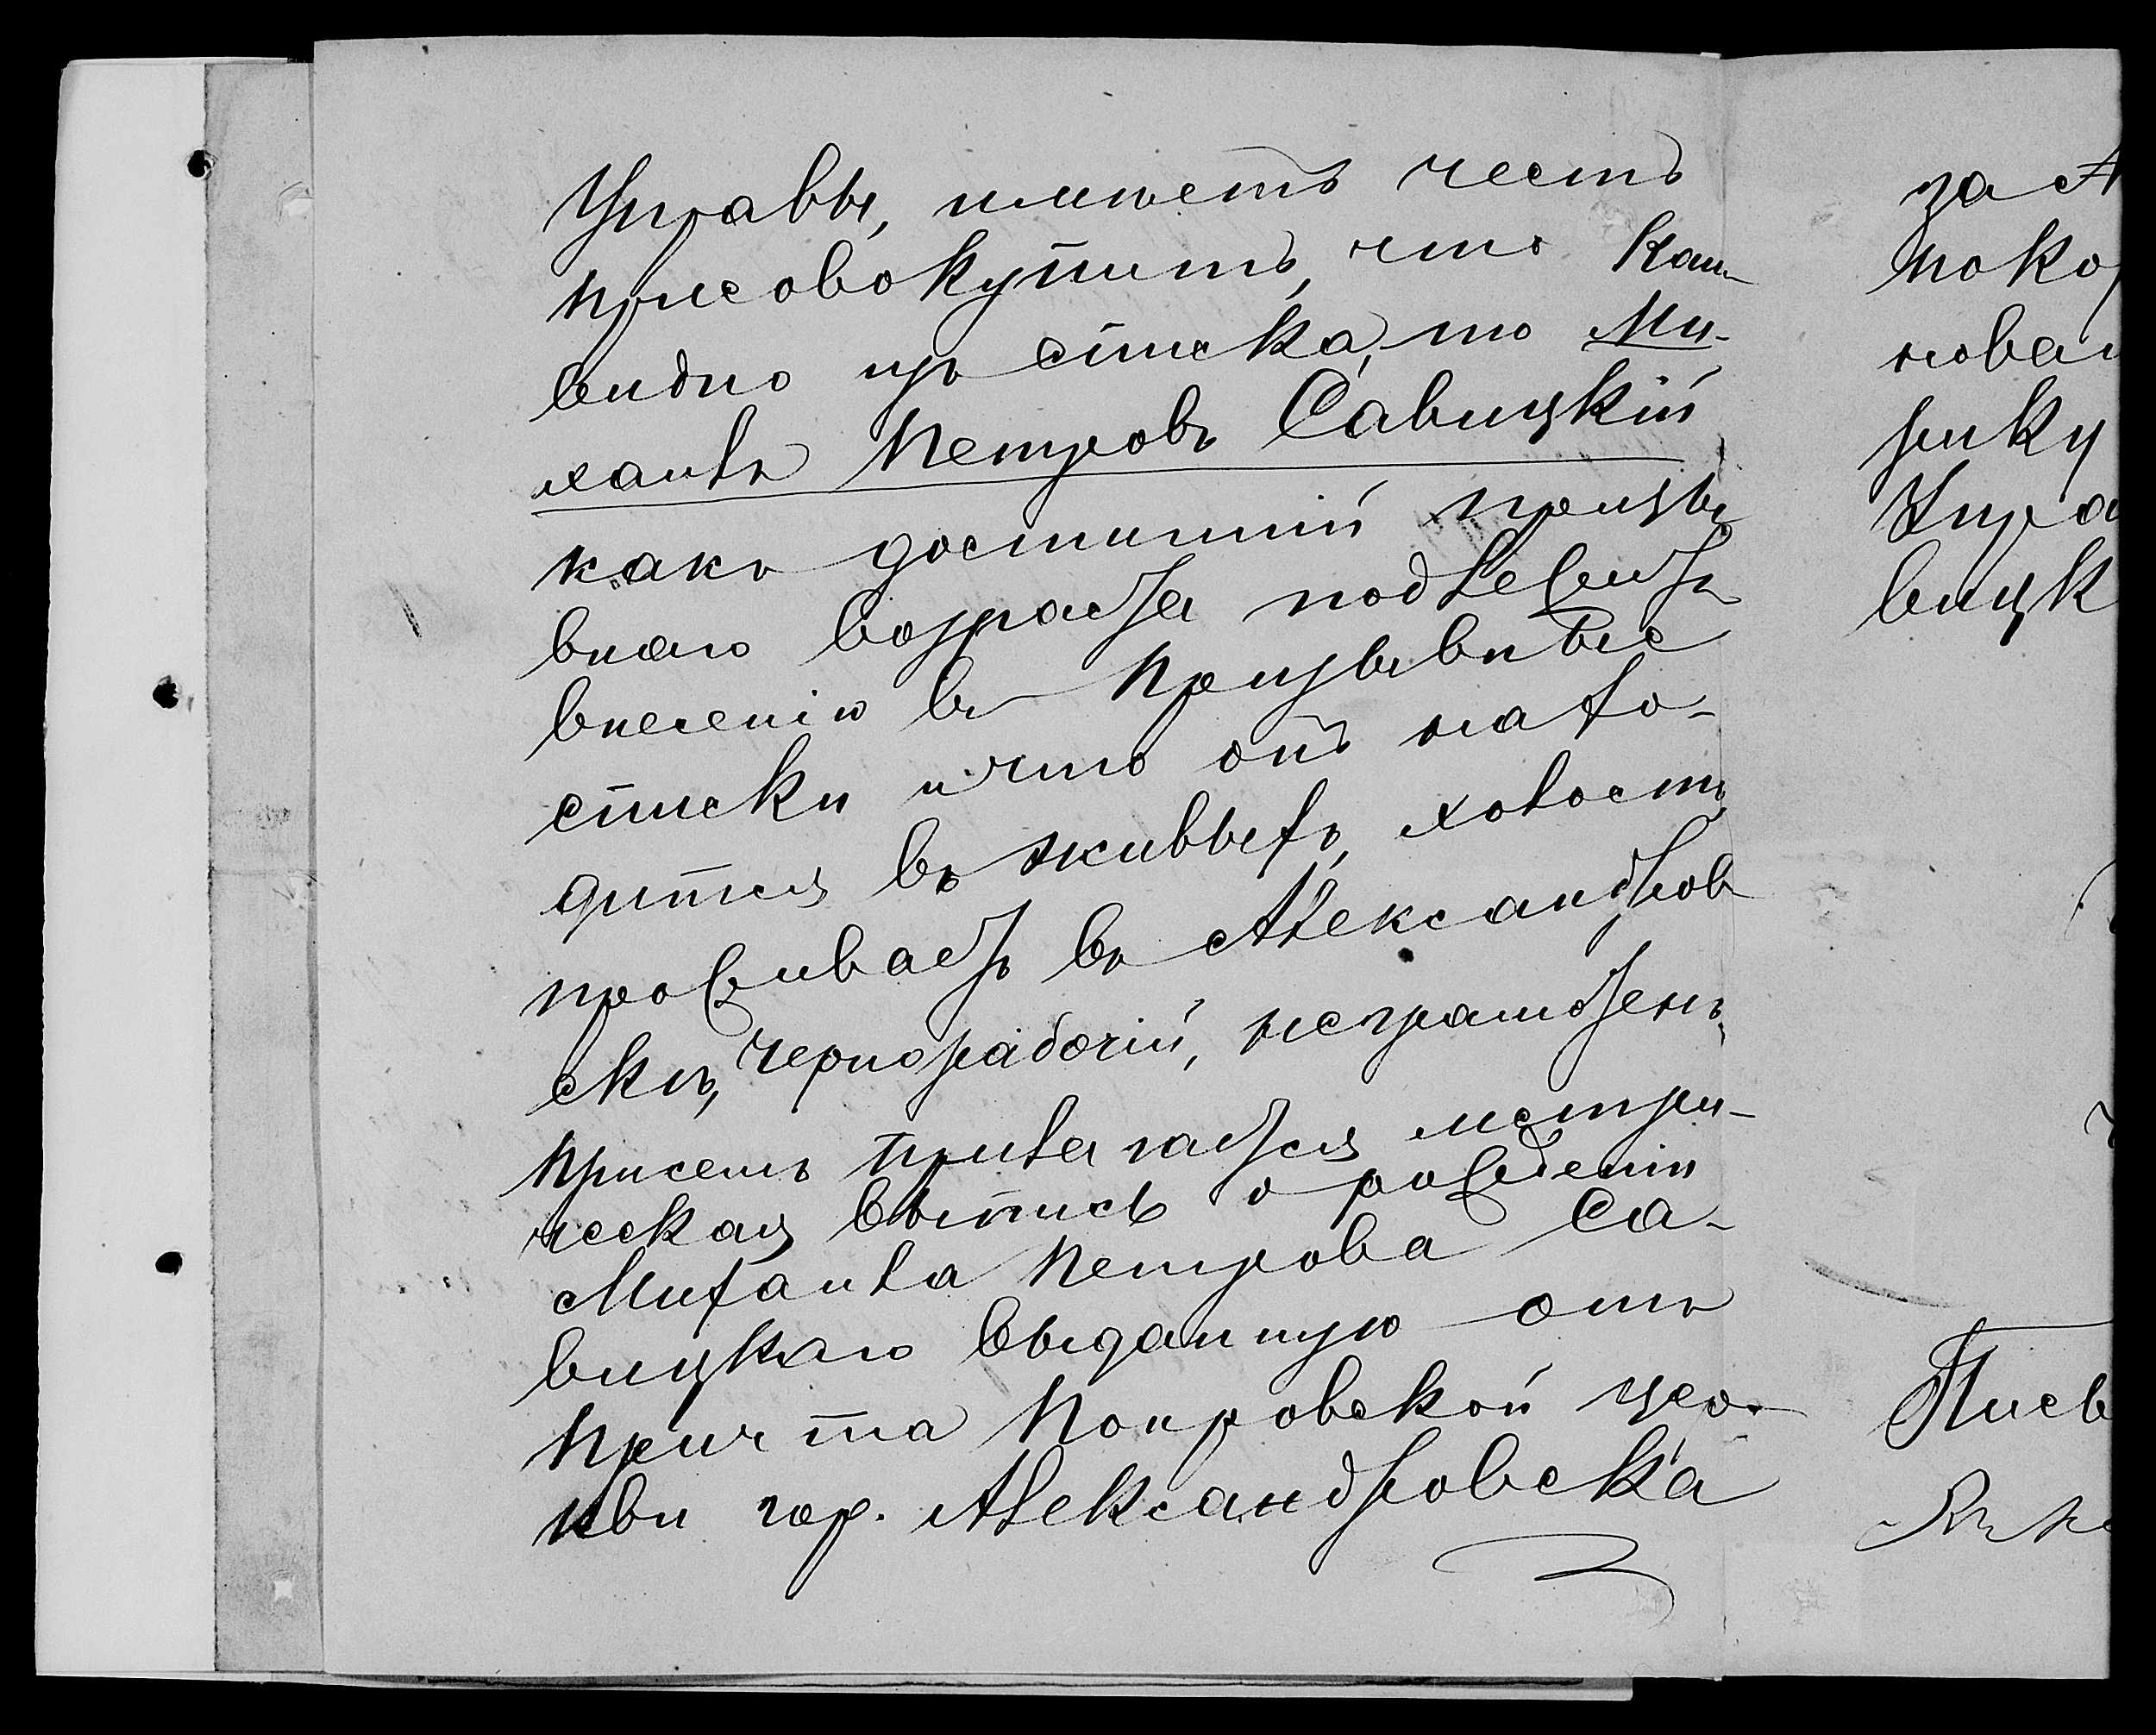 Управы, имѣетъ честь
присовокупить, что какъ
видно изъ списка, то Ми-
хаилъ Петровъ Савицкій
какъ достигшій призы
внаго возраста подлежитъ
внесенію въ призывные
списки и что онъ нахо-
дится въ живыхъ, холостъ,
проживаетъ въ Александров
скѣ, чернорабочій, неграмотенъ,
при семъ прилагается метри-
ческая выпись о рожденіи
Михаила Петрова Са-
вицкаго выданную отъ
причта Покровской цер-
кви гор. Александровска
за А
поко
нован
рику
Упра
вицк